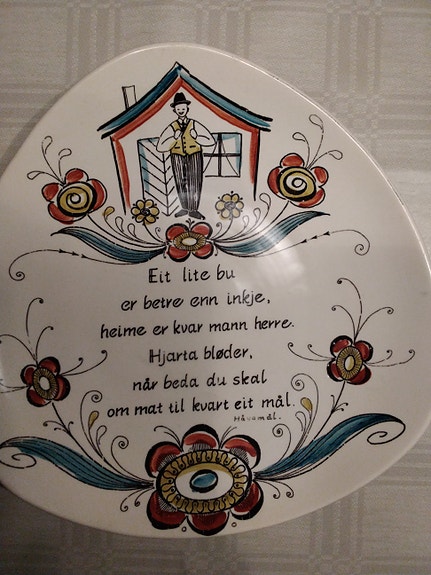 Eit lite bu
er betre enn inkje,
heime er kvar mann herre.
Hjarta bløder,
når beda du skal
om mat til kvart eit mål.
Håvamål.